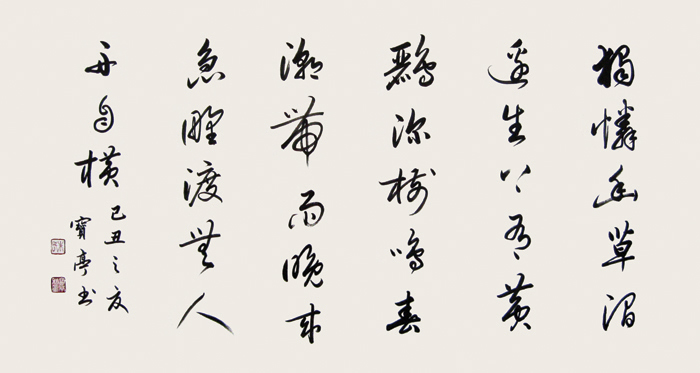 獨憐幽草澗
邊生上有黃
鸝深樹鳴春
潮帶雨晚來
急野渡無人
舟自橫
己丑之夏
寶亭書